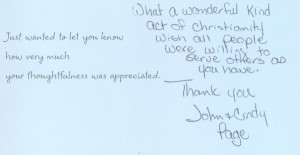 Just wanted to let you know
how very much
your thoughtfulness was appreciated.
What a wonderful kind
act of Christianity
wish all people
were willing to
serve others as
you have.
Thank you
John & Cindy
Page